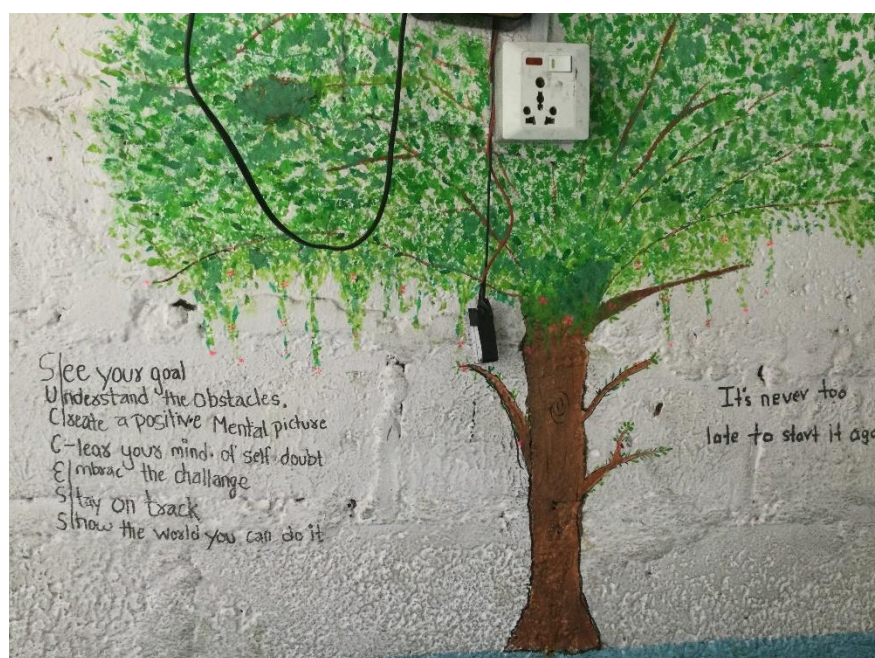 S|ee your goal
U|nderstand the obstacles.
C|reate a positive Mental picture
C-lear your mind. of self doubt
E|mbrac the challange
S|tay on track
S|how the world you can do it
It's never too
late to start it aga